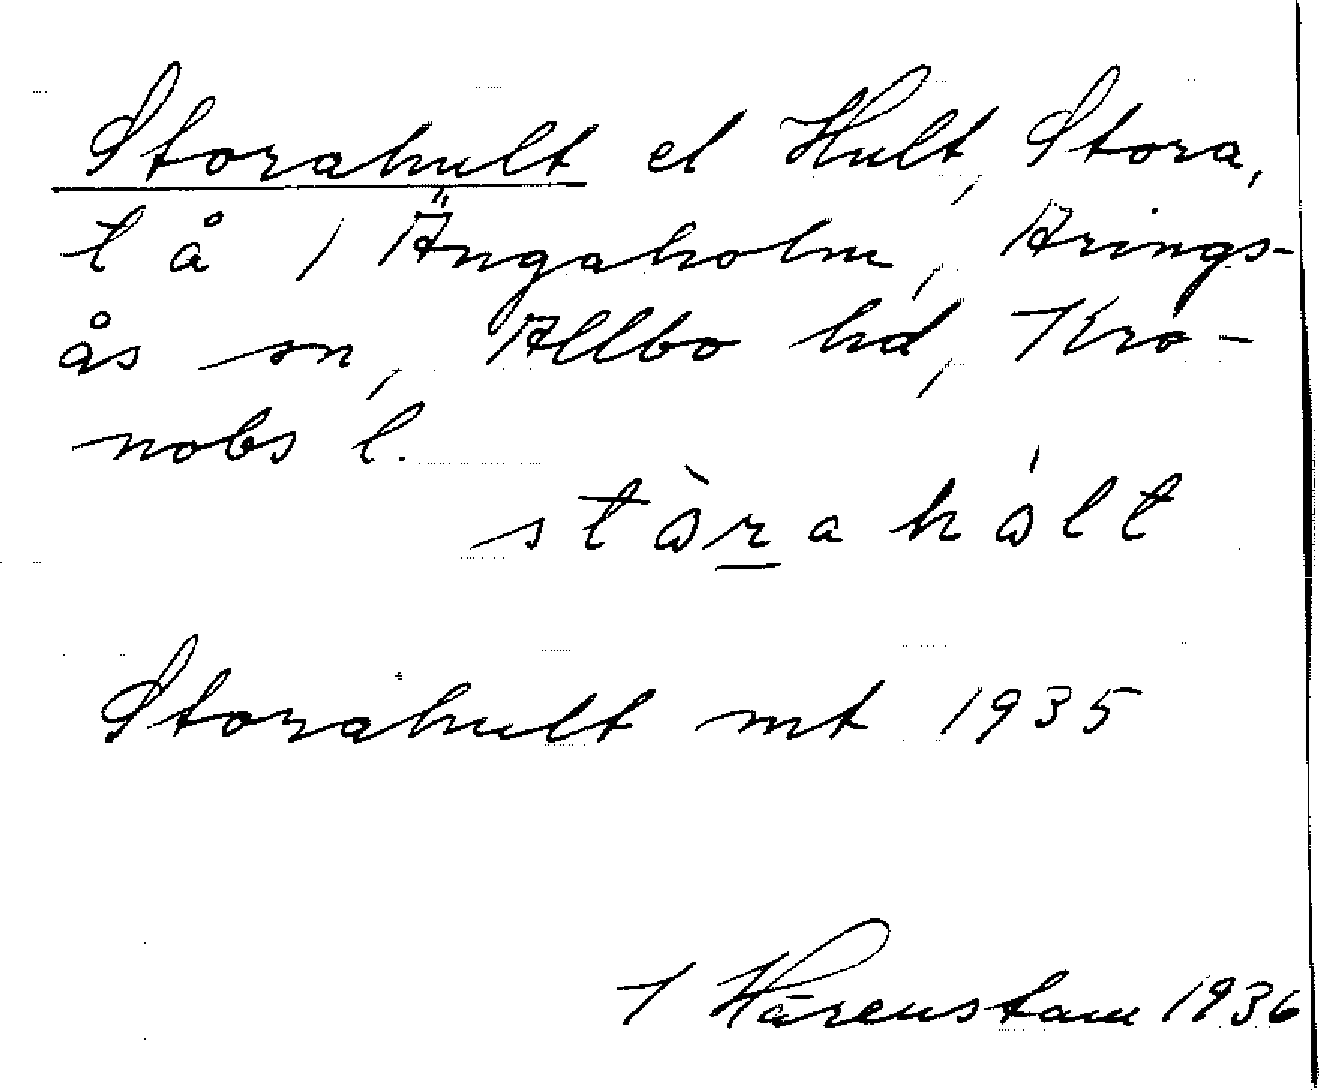 Storahult el Hult, Stora,
t å 1 Ängaholm, Arings-
ås sn, Allbo hd, Kro-
nobs l.
stòrahált
Storahult mt 1935
I Härenstam 1936